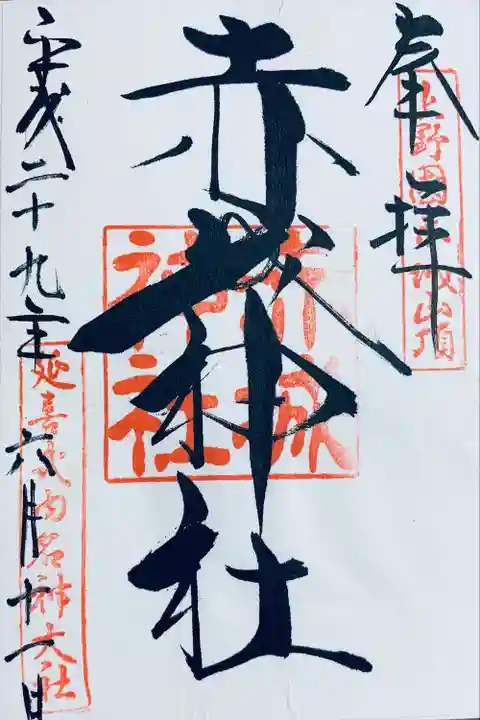 奉拝
上野国赤城山頂
赤城神社
赤城神社
平成二十九年六月十一日
延喜式内名神大社